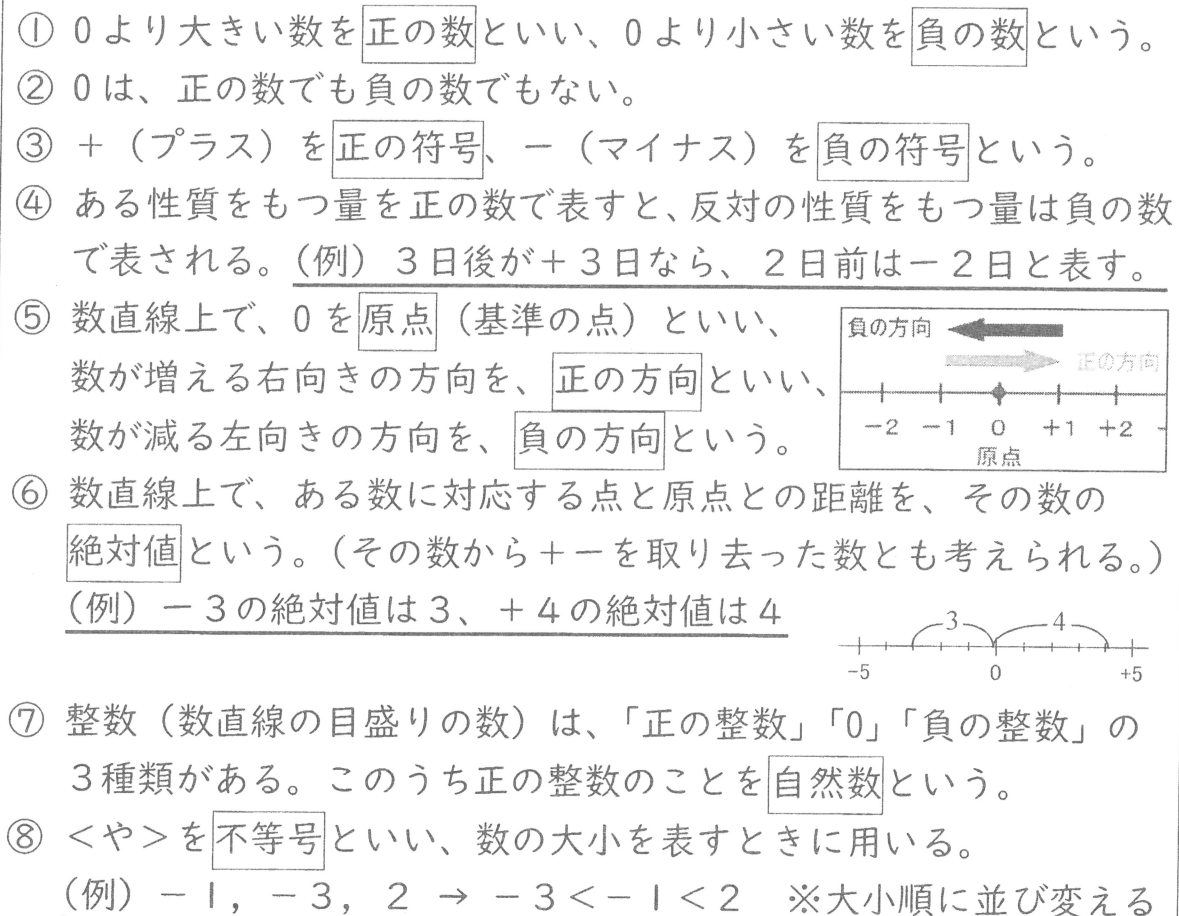 ① 0より大きい数を正の数といい、0より小さい数を負の数という。
② 0は、正の数でも負の数でもない。
③ ＋（プラス）を正の符号、－（マイナス）を負の符号という。
④ ある性質をもつ量を正の数で表すと、反対の性質をもつ量は負の数
で表される。（例）３日後が＋３日なら、２日前は－２日と表す。
⑤ 数直線上で、0を原点（基準の点）といい、
数が増える右向きの方向を、正の方向といい、
数が減る左向きの方向を、負の方向という。
負の方向
正の方向
－2 －1 0 +1 +2
原点
⑥ 数直線上で、ある数に対応する点と原点との距離を、その数の
絶対値という。（その数から＋－を取り去った数とも考えられる。）
（例）－３の絶対値は３、＋４の絶対値は４
3 4
-5 0 +5
⑦ 整数（数直線の目盛りの数）は、「正の整数」「0」「負の整数」の
３種類がある。このうち正の整数のことを自然数という。
⑧ ＜や＞を不等号といい、数の大小を表すときに用いる。
（例）－１，－３，２ → －３＜－１＜２ ※大小順に並び変える